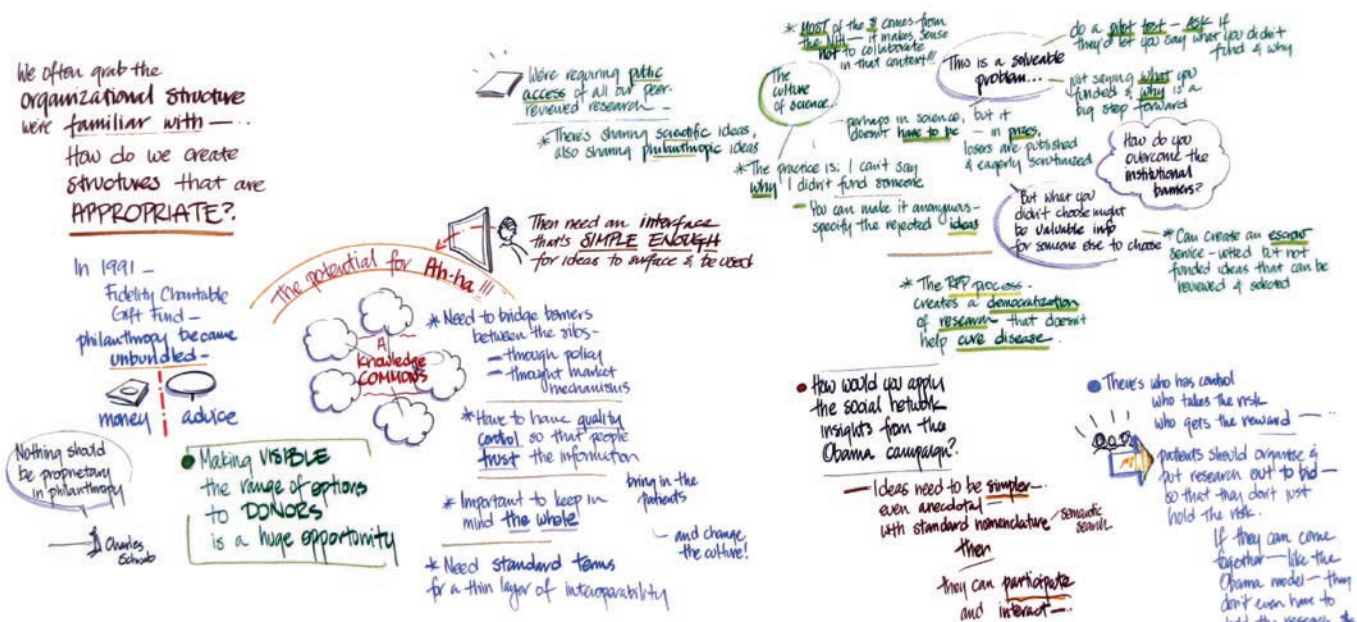 We often grab the
organizational structure
we're familiar with —..
How do we create
structures that are
APPROPRIATE?.
In 1991 —
Fidelity Charitable
Gift Fund —
philanthropy became
unbundled —
money
advice
Nothing should
be proprietary
in philanthropy
Charles
Schwab
Making VISIBLE
the range of options
to DONORS
is a huge opportunity
The potential for Ah-ha!!!
A
Knowledge
COMMONS
Then need an interface
that's SIMPLE ENOUGH
for ideas to surface & be used
* Need to bridge barriers
between the silos —
— through policy
— thought market
mechanisms
* Have to have quality
control so that people
trust the information
* Important to keep in
mind the whole
bring in the
patients
and change
the culture!
* Need standard terms
for a thin layer of interoperability
We're requiring public
access of all our peer-
reviewed research —
* There's sharing scientific ideas,
also sharing philanthropic ideas
* MOST of the $ comes from
the NIH — it makes sense
not to collaborate
in that context!!!
The
culture
of science..
perhaps in science, but it
doesn't have to be — in prizes,
losers are published
& eagerly scrutinized
* The practice is: I can't say
why I didn't fund someone
— You can make it anonymous —
specify the rejected ideas
This is a solveable
problem...
do a pilot test — ASK if
they'd let you say what you didn't
fund & why
just saying what you
funded & why is a
big step forward
How do you
overcome the
institutional
barriers?
But what you
didn't choose might
be valuable info
for someone else to choose
* Can create an escrow
service — vetted but not
funded ideas that can be
reviewed & selected
* The RFP process
creates a democratization
of research that doesn't
help cure disease.
How would you apply
the social network
insights from the
Obama campaign?
— Ideas need to be simpler —.
even anecdotal —
with standard nomenclature
semantic
search
then
they can participate
and interact —..
There's who has control
who takes the risk
who gets the reward —..
patients should organize &
put research out to bid —
so that they don't just
hold the risk.
If they can come
together — like the
Obama model — they
don't even have to